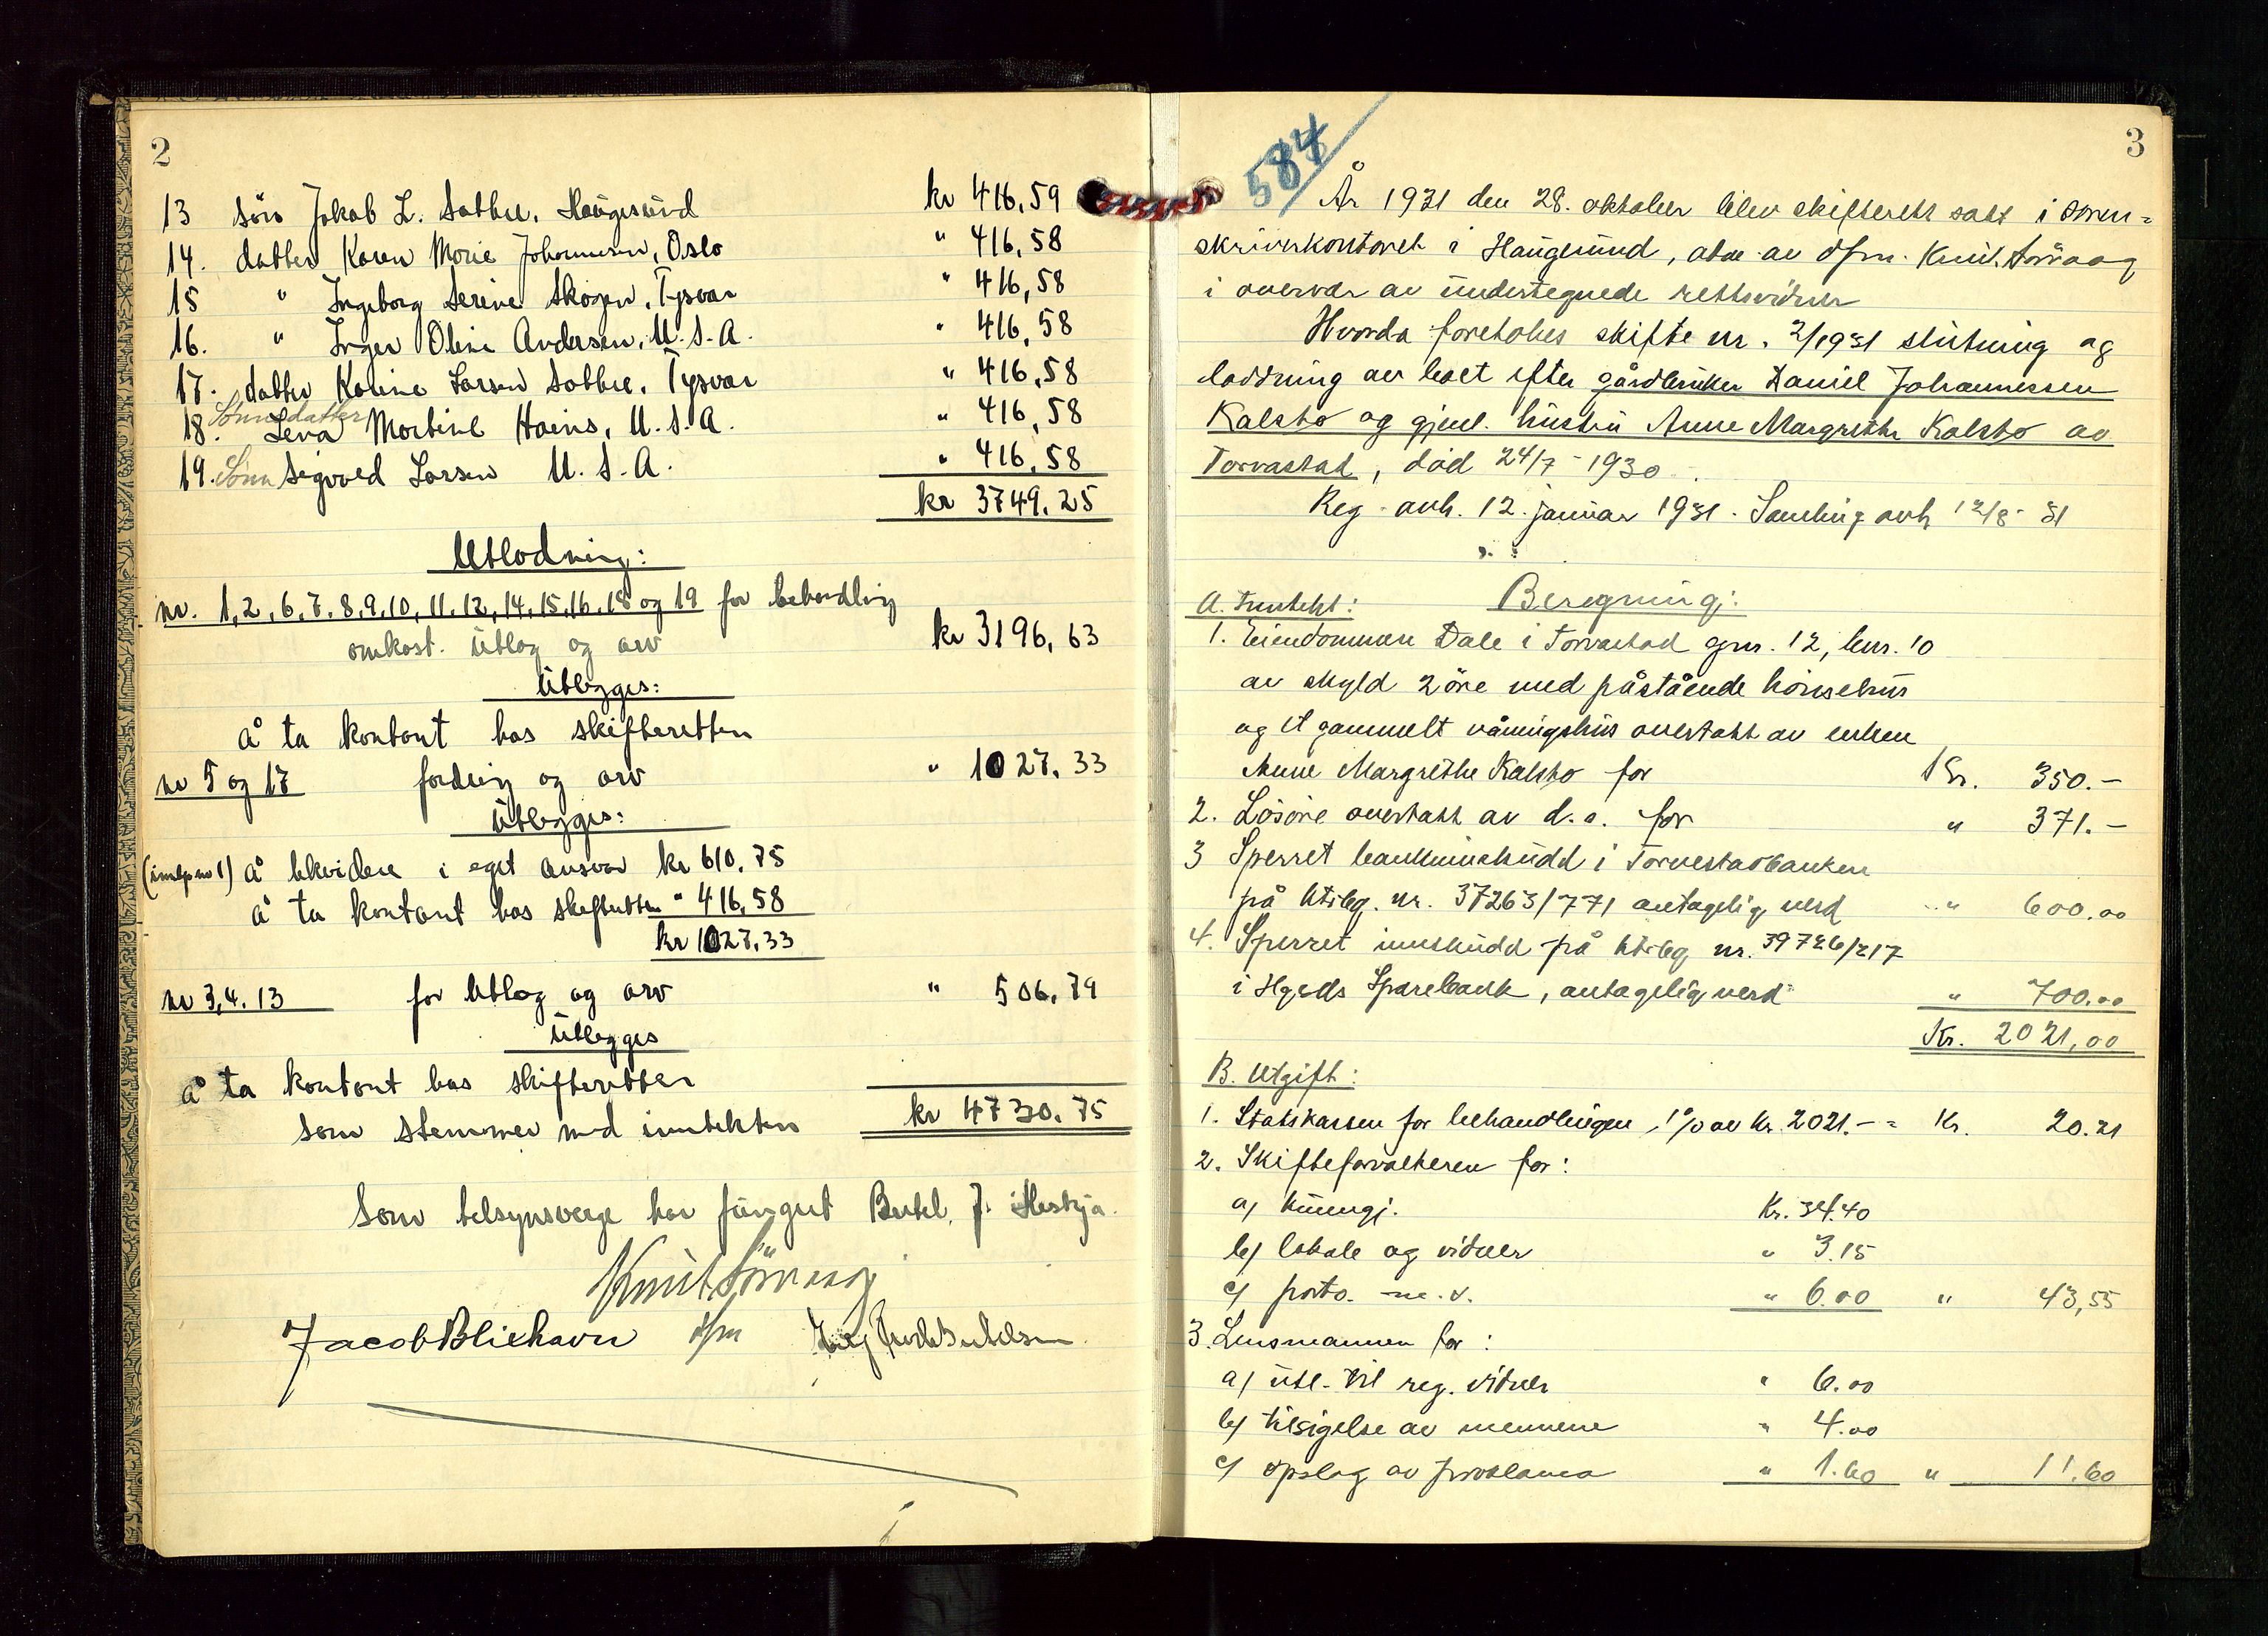 2
13 sön Jakob L. Sabbee, Haugesund kr 416,59
14. datter Karen Marie Johannesen, Oslo " 416,58
15 " Ingeborg Serine Skogen, Tysvær " 416,58
16. " Inger Oline Andersen, U.S.A. " 416,58
17. datter Karine Larsen Sabbee, Tysvær " 416,58
Sönnedatter
18. Lena Martine Hains, U.S.A. " 416,58
19. Sönn Sigvald Larsen U.S.A. " 416,58
kr 3749,25
Utlodning:
nr. 1,2,6,7,8,9,10,11,12,14,15,16,18 og 19 for behandling
omkost. utlæg og arv kr 3196,63
Utlegges:
å ta kontant hos skifteretten
nr 5 og 17 fordring og arv " 1027,33
Utlegges:
(innlp nr 1) å likvidere i eget ansvar kr 610,75
å ta kontant hos skifteretten " 416,58
kr 1027,33
nr 3,4,13 for utlæg og arv " 506,79
Utlegges
å ta kontant hos skifteretten
som stemmer med inntekten kr 4730,75
Som tilsynsverge har fungert Bertel J.
Knut Sörvaag
Jacob Bliehavn dfm
3
584
År 1931 den 28. oktober blev skifterett satt i soren=
skriverkontoret i Haugesund, adm. av dfm. Knut Sörvaag
i overvær av undertegnede rettsvidner
Hvorda foretokes skifte nr. 2/1931 slutning og
lodding av boet efter gårdbruker Daniel Johannessen
Kalstø og gjenl. hustru Anne Margrethe Kalstø av
Torvastad, död 24/7 - 1930.
Reg. avh. 12. januar 1931. Samling avh 12/8 - 31
Beregning:
A. Inntekt:
1. Eiendommen Dale i Torvastad gnr. 12, bnr. 10
av skyld 2 öre med påstående hönsehus
og et gammelt våningshus overtatt av enken
Anne Margrethe Kalstø for Kr. 350.-
2. Lösöre overtatt av d.s. for " 371.-
3 Sperret bankinnskudd i Torvestadbanken
på ktrbg. nr. 37263/771 antagelig verd " 600.00
4. Sperret innskudd på ktrbg nr. 39726/217
i Hgsds Sparebank, antagelig verd " 700.00
Kr. 2021,00
B. Utgift:
1. Statskassen for behandlingen, 1% av Kr. 2021.- = Kr. 20.21
2. Skifteforvalteren for:
a) kunngj. Kr. 34.40
b) lokale og vidner " 3.15
c) porto m.v. " 6.00 " 43,55
3. Lensmannen for:
a) utl. til reg. vidner " 6.00
b) tilsigelse av mennene " 4.00
c) opslag av proklama " 1.60 " 11.60